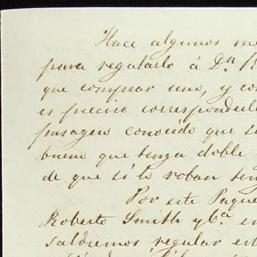 Hace algunos me
para regularlo á Dn R
que comprar uno, y co
es preciso corresponderle
pasagero conocido que s
bueno que tenga doble
de que si lo roban ten
Por este Paque
Roberto Smith y Cª en
saldremos regular en